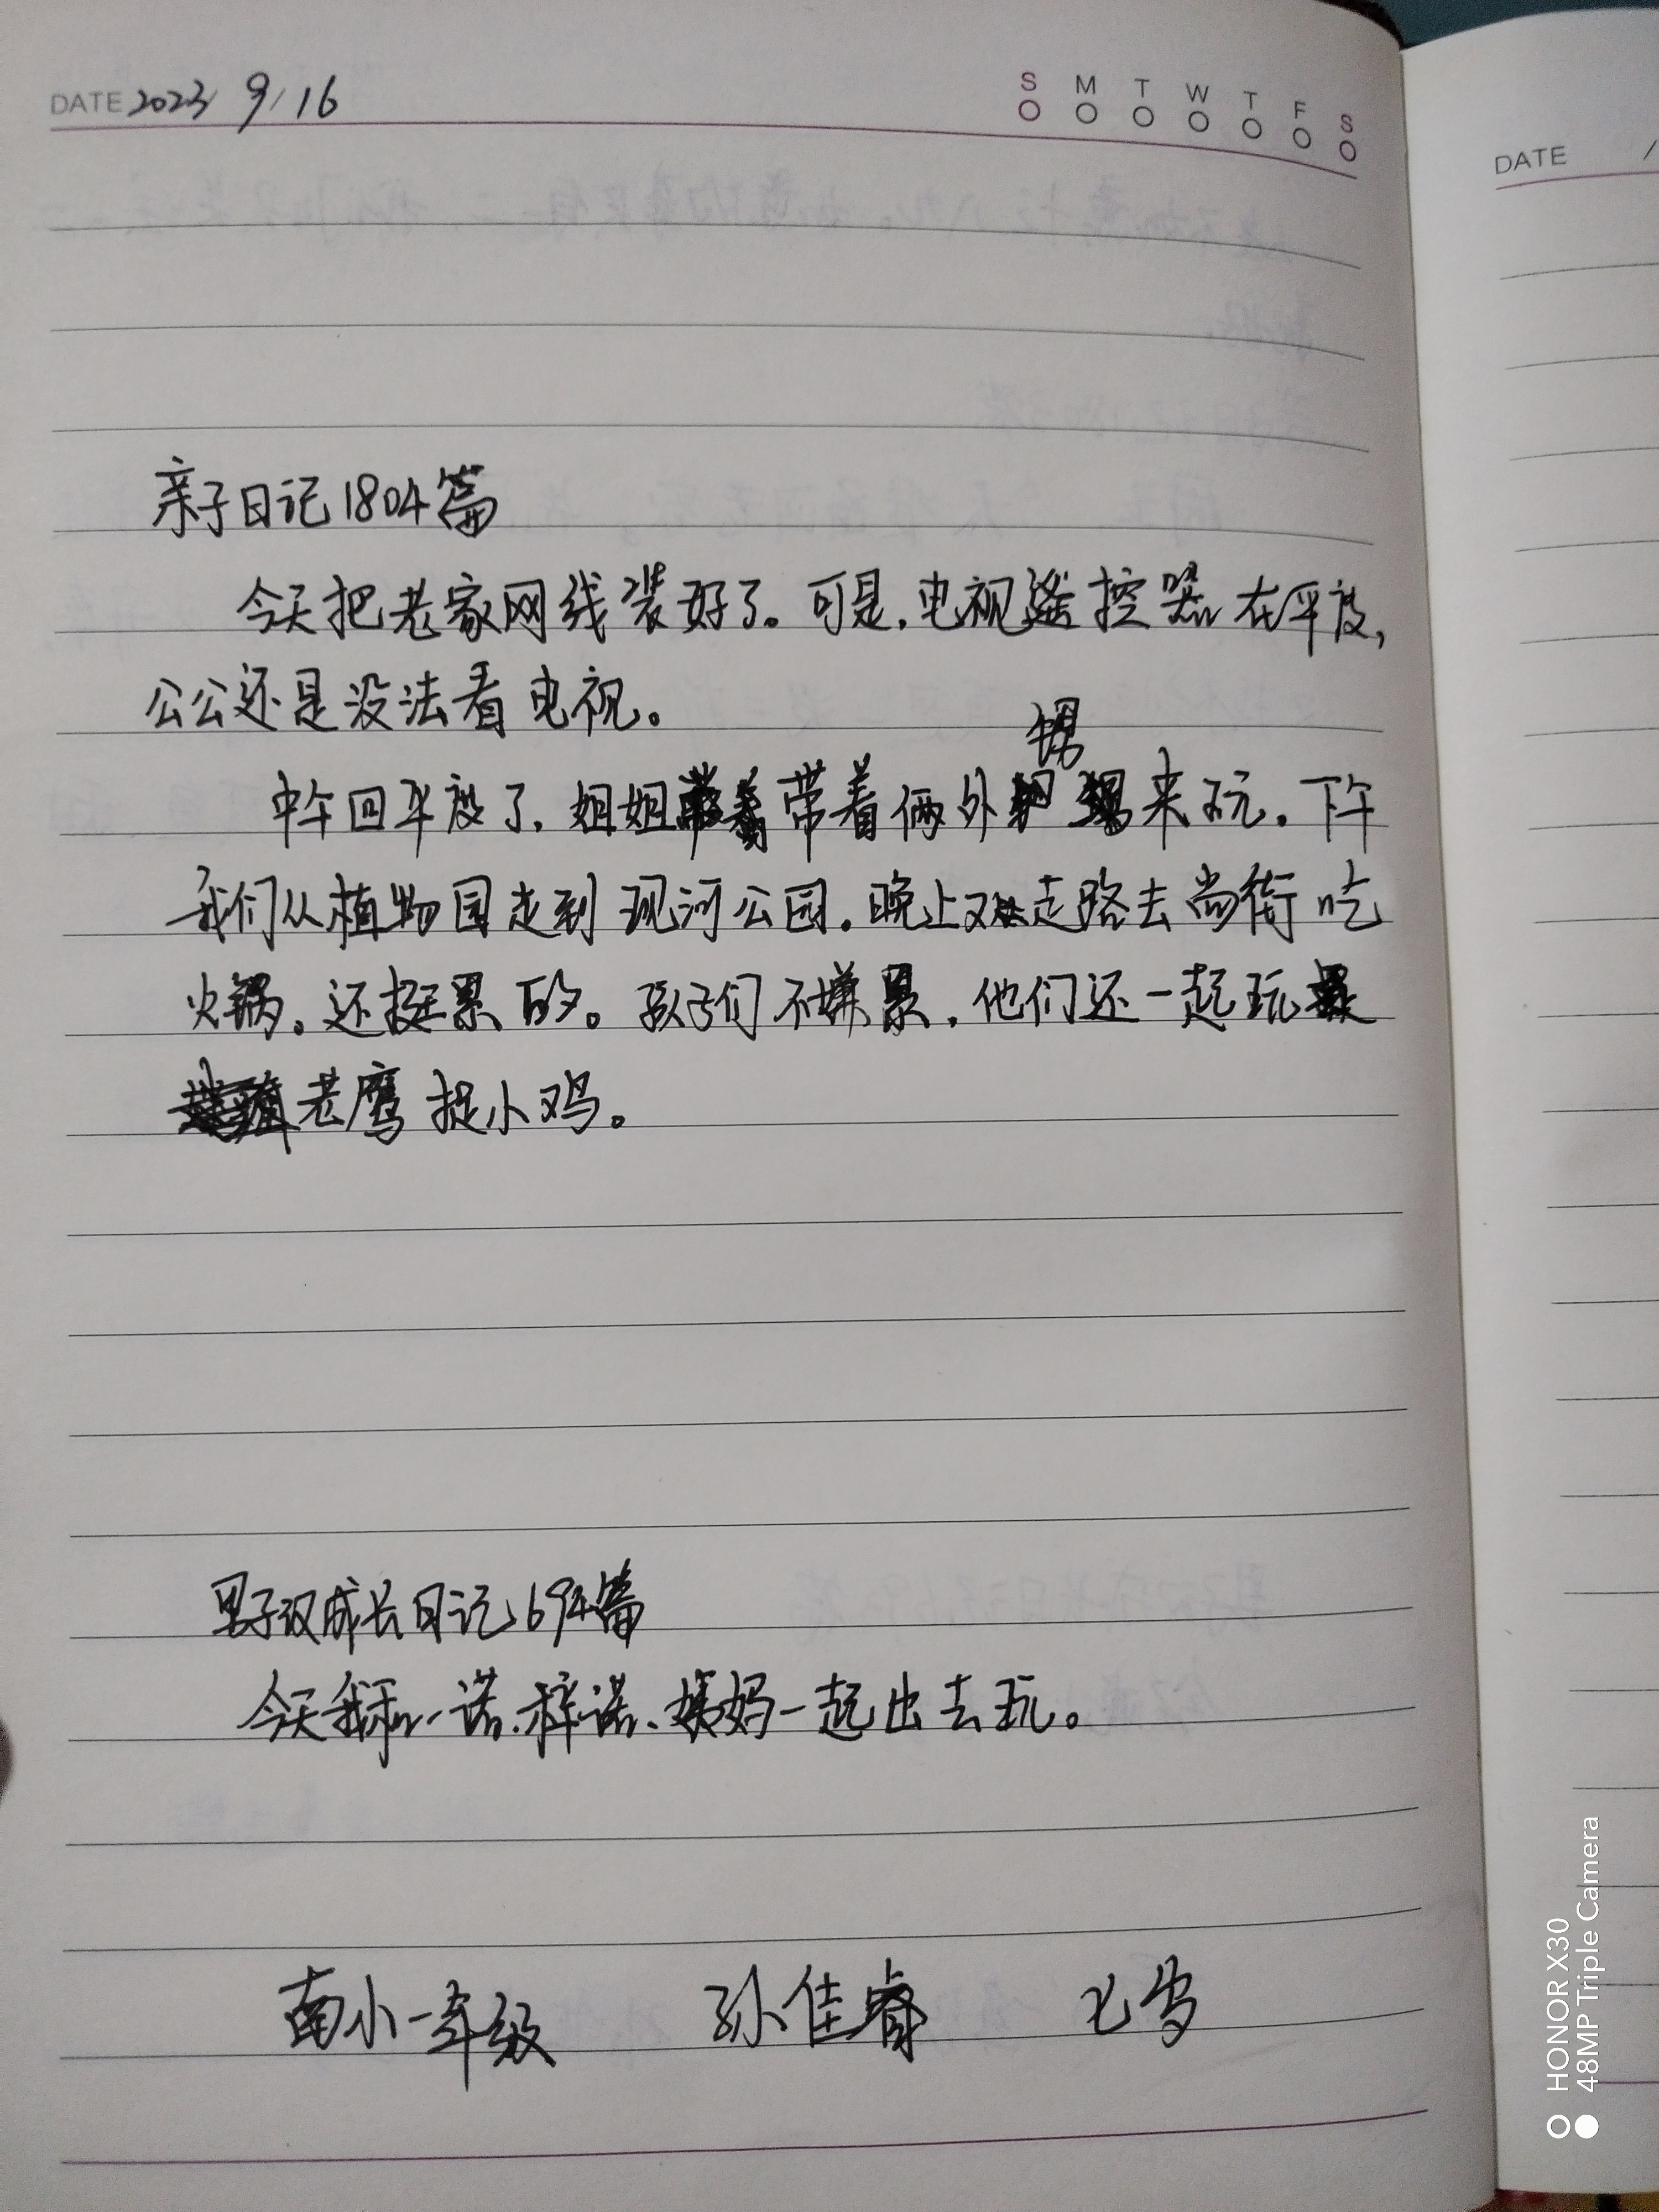 DATE 2023 9/16
S M T W T F S
DATE /
亲子日记1804篇
今天把老家网线装好了。可是,电视遥控器在平度,
公公还是没法看电视。
中午回平度了,姐姐带着俩外甥来玩。下午
我们从植物园走到现河公园。晚上又走路去尚街吃
火锅。还挺累的。孩子们不嫌累,他们还一起玩
老鹰捉小鸡。
男子汉成长日记694篇
今天我和一诺、梓诺、姨妈一起出去玩。
南小一年级 孙佳睿
HONOR X30
48MP Triple Camera